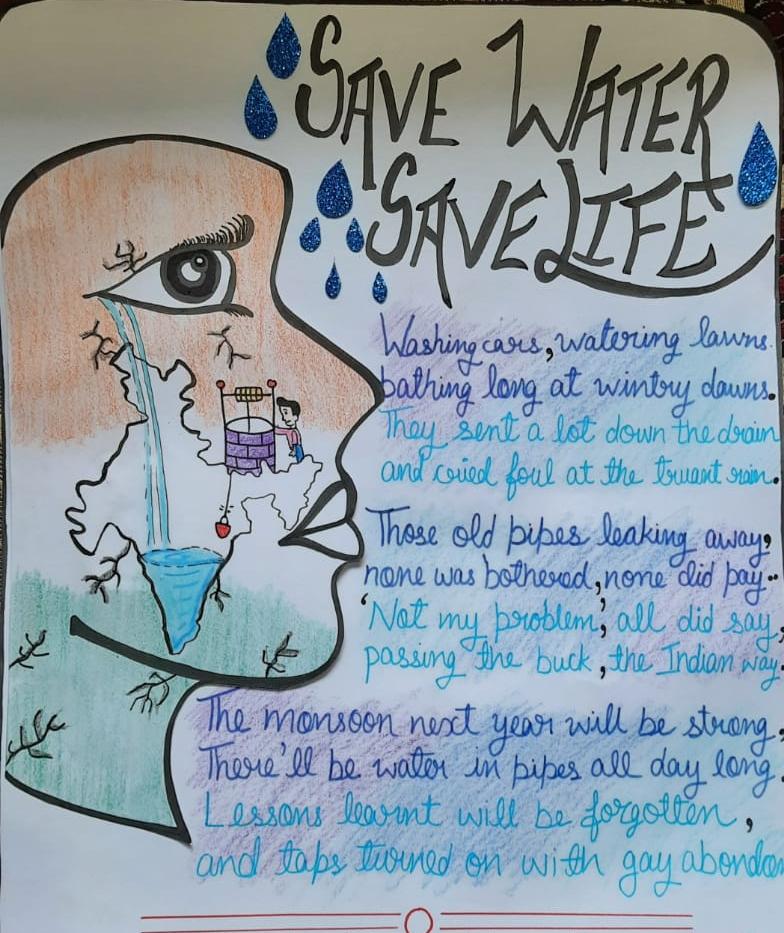 SAVE WATER
SAVE LIFE
Washing cars, watering lawns.
bathing long at wintry dawns.
They sent a lot down the drain
and cried foul at the truant rain.
Those old pipes leaking away,
none was bothered, none did pay..
'Not my problem', all did say,
passing the buck, the Indian way.
The monsoon next year will be strong,
There'll be water in pipes all day long.
Lessons learnt will be forgotten,
and taps turned on with gay abondon